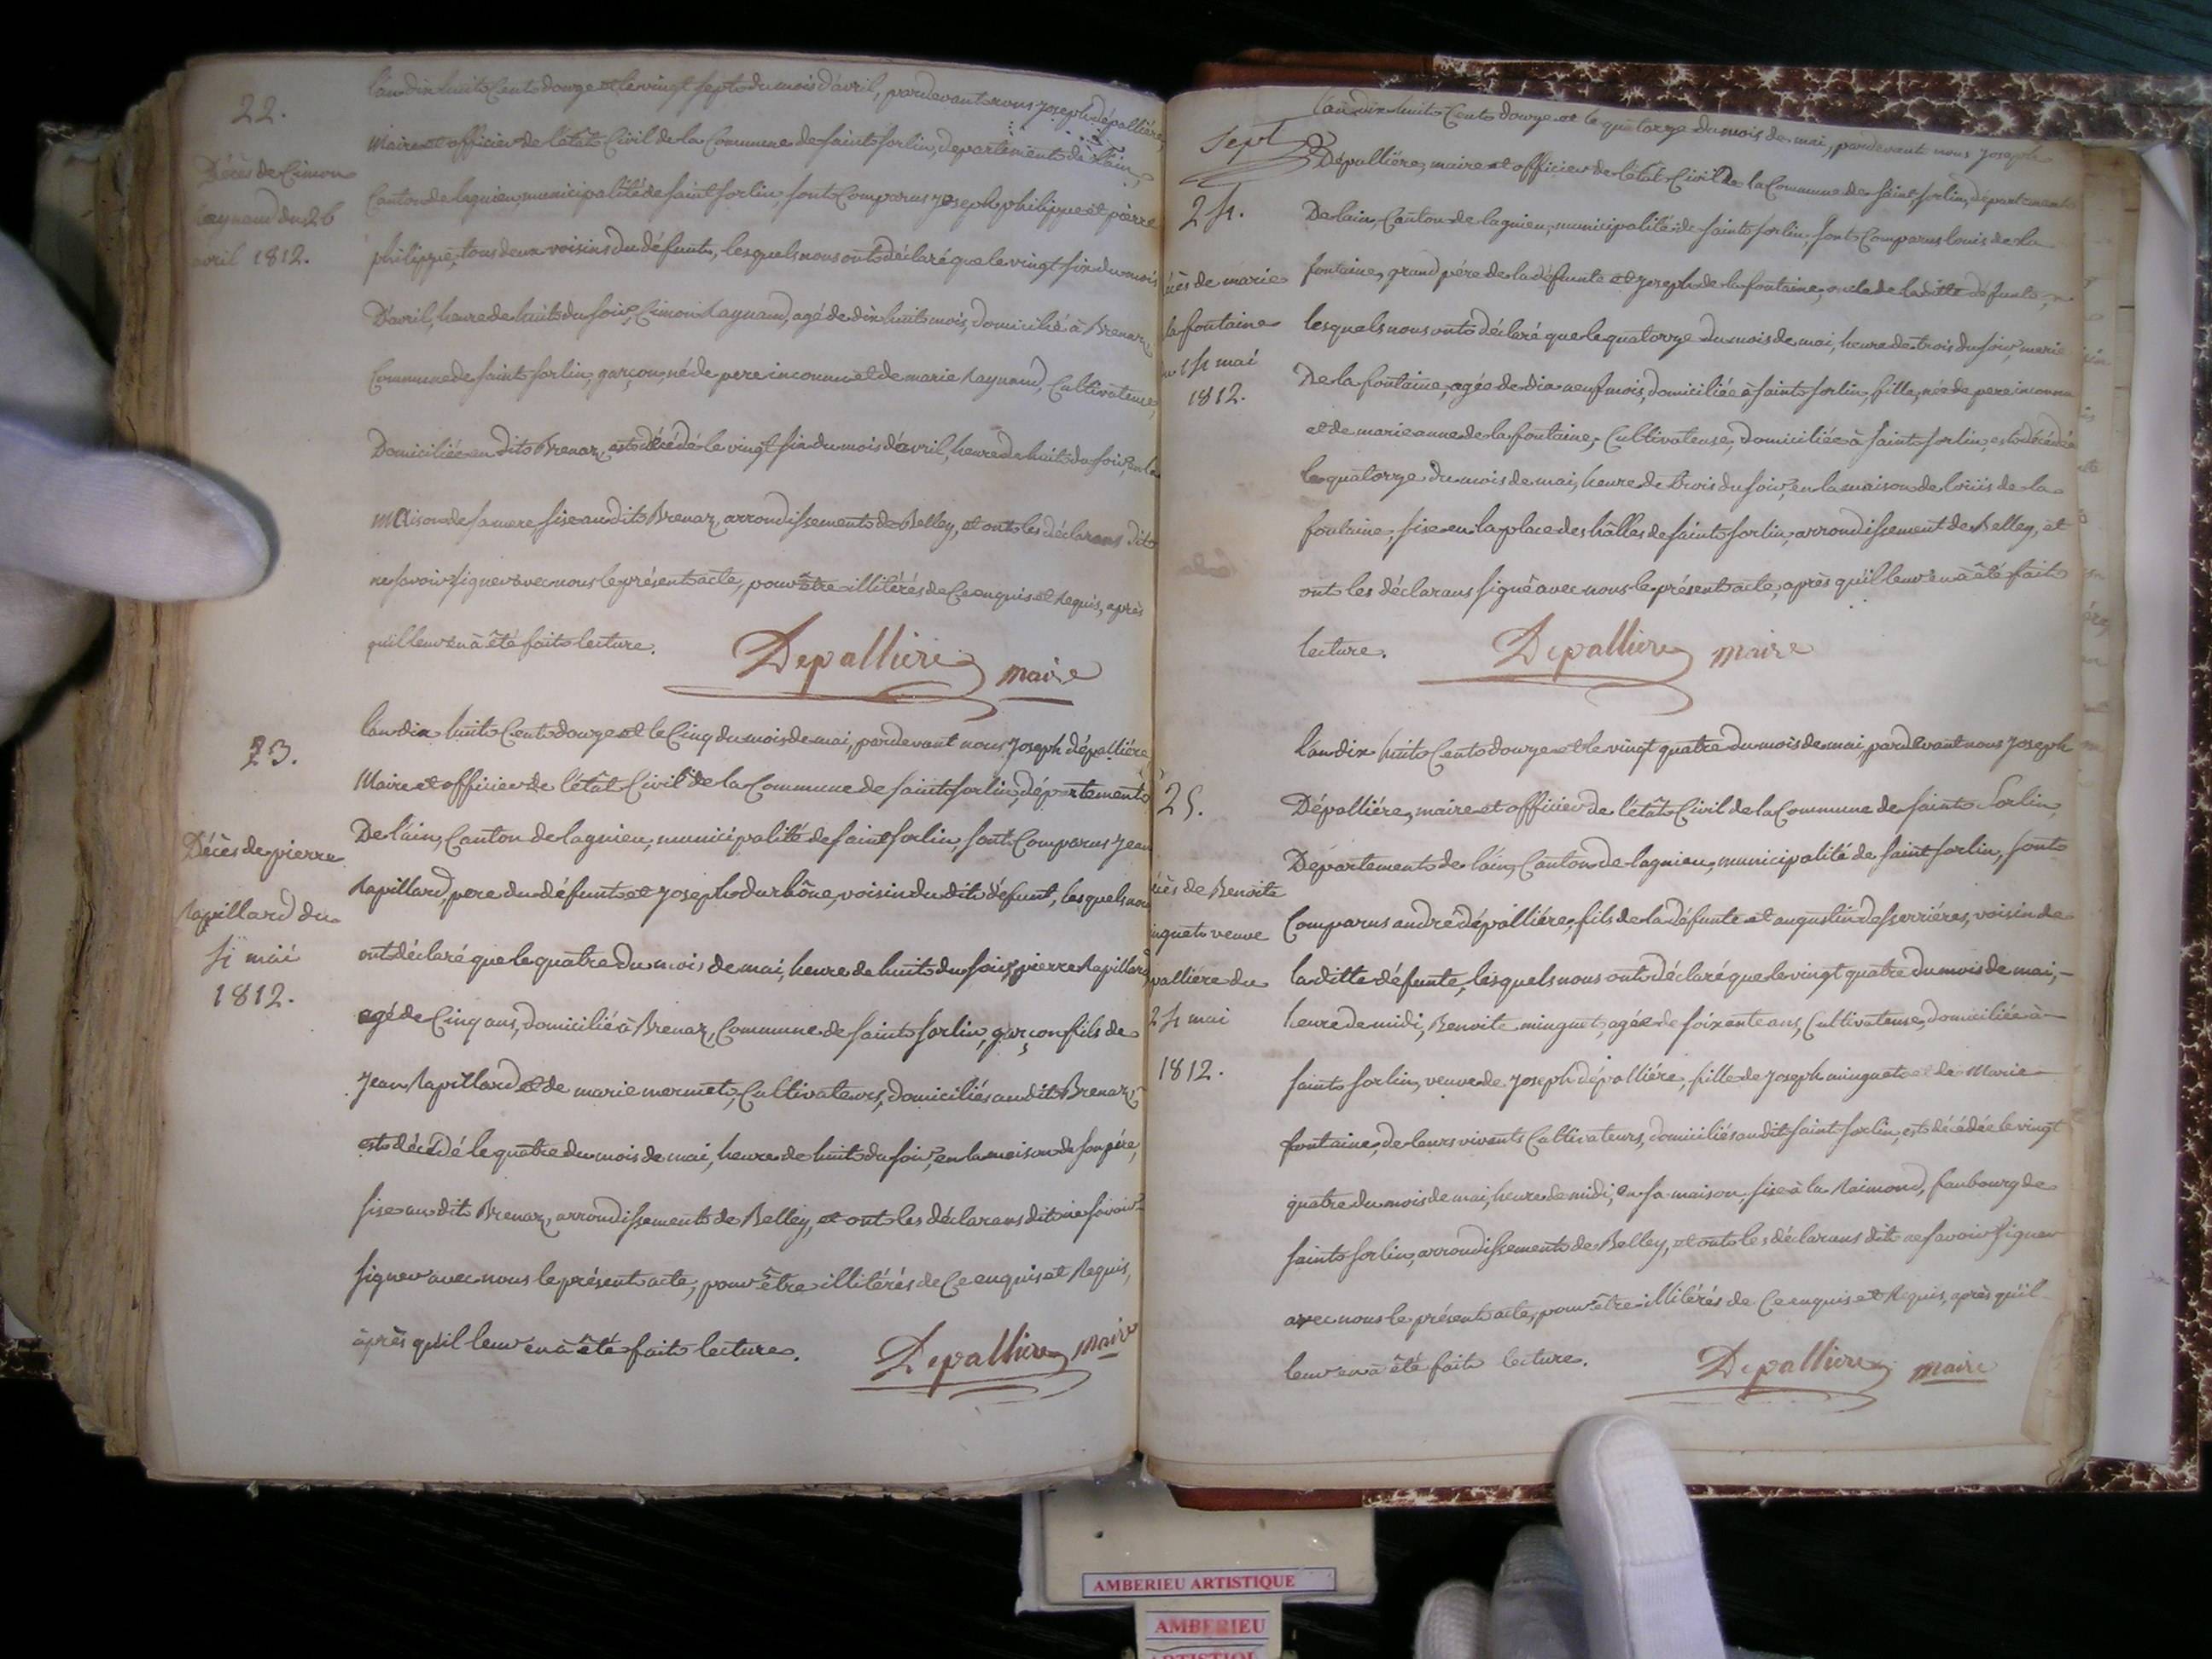 22.
Décès de Cimon
Raynaud du 26
avril 1812.
l'an dix huit Cent douze et le vingt sept du mois d'avril, pardevant nous joseph dépalliére,
Maire et officier de l'êtât Civil de la Commune de saint sorlin, departement de l'ain,
Canton de lagnieu, municipalité de saint sorlin, sont Comparus joseph philippe et pierre
philippe, tous deux voisins du défunt, lesquels nous ont déclaré que le vingt six du mois
D'avril, heure de huit du soir, Cimon Raynaud, agé de dix huit mois, domicilié à Brenaz,
Commune de saint sorlin, garçon, né de pere inconnu et de marie Raynaud, Cultivateuse,
Domiciliée au dit Brenaz, est décédé le vingt six du mois d'avril, heure de huit du soir, en la
maison de sa mere sise au dit Brenaz, arrondissement de Belley, et ont les déclarans dit
ne savoir signer avec nous le présent acte, pour être illitérés de Ce enquis et Requis, après
qu'il leur en à êté fait lecture.
Depalliere maire
23.
Décès de pierre
Rapillard du
4 mai
1812.
l'an dix huit Cent douze et le Cinq du mois de mai, pardevant nous Joseph dépalliére
Maire et officier de l'êtât Civil de la Commune de saint sorlin, département
De l'ain, Canton de lagnieu, municipalité de saint sorlin, sont Comparus jean
Rapillard, pere du défunt et joseph durhône, voisin du dit défunt, lesquels nous
ont déclaré que le quatre du mois de mai, heure de huit du soir, pierre Rapillard
agé de Cinq ans, domicilié à Brenaz, Commune de saint sorlin, garçon fils de
jean Rapillard et de marie mermet, Cultivateurs, domiciliés au dit Brenaz,
est décédé le quatre du mois de mai, heure de huit du soir, en la maison de son pére,
sise au dit Brenaz, arrondissement de Belley, et ont les déclarans dit ne savoir
signer avec nous le présent acte, pour être illitérés de Ce enquis et Requis,
après qu'il leur en à êté fait lecture.
Depalliere maire
Sept
24.
cès de marie
la fontaine
14 mai
1812.
l'an dix huit Cent douze et le quatorze du mois de mai, pardevant nous joseph
Dépalliére, maire et officier de l'êtât Civil de la Commune de saint sorlin, département
De lain, Canton de lagnieu, municipalité de saint sorlin, sont Comparus louis de la
fontaine, grand pére de la défunte et joseph de la fontaine, oncle de la ditte défunte,
lesquels nous ont déclaré que le quatorze du mois de mai, heure de trois du soir, marie
De la fontaine, agée de dix neuf mois, domiciliée à saint sorlin, fille, née de pere inconnu
et de marie anne de la fontaine, Cultivateuse, domiciliée à saint sorlin, est décédée
le quatorze du mois de mai, heure de trois du soir, en la maison de loüis de la
fontaine, sise en la place des hâlles de saint sorlin, arrondissement de Belley, et
ont les déclarans signé avec nous le présent acte, après qu'il leur en à êté fait
lecture.
Depalliere maire
25.
cès de Benoite
inguet veuve
palliere du
24 mai
1812.
l'an dix huit Cent douze et le vingt quatre du mois de mai, pardevant nous Joseph
Dépalliére, maire et officier de l'êtât Civil de la Commune de saint Sorlin,
Département de l'ain, Canton de lagnieu, municipalité de saint sorlin, sont
Comparus andré dépalliére, fils de la défunte et augustin desserriéres, voisin de
la ditte défunte, lesquels nous ont déclaré que le vingt quatre du mois de mai,
heure de midi, Benoite minguet, agée de soixante ans, Cultivateuse, domiciliée à
saint sorlin, veuve de joseph dépalliére, fille de joseph minguet et de Marie
fontaine, de leurs vivants Cultivateurs, domiciliés au dit saint sorlin, est décédée le vingt
quatre du mois de mai, heure de midi, en sa maison, sise à la Raimond, faubourg de
saint sorlin, arrondissement de Belley, et ont les déclarans dit ne savoir signer
avec nous le présent acte, pour être illitérés de Ce enquis et Requis, après qu'il
leur en à êté fait lecture.
Depalliere maire
AMBERIEU ARTISTIQUE
AMBERIEU
ARTISTIQUE